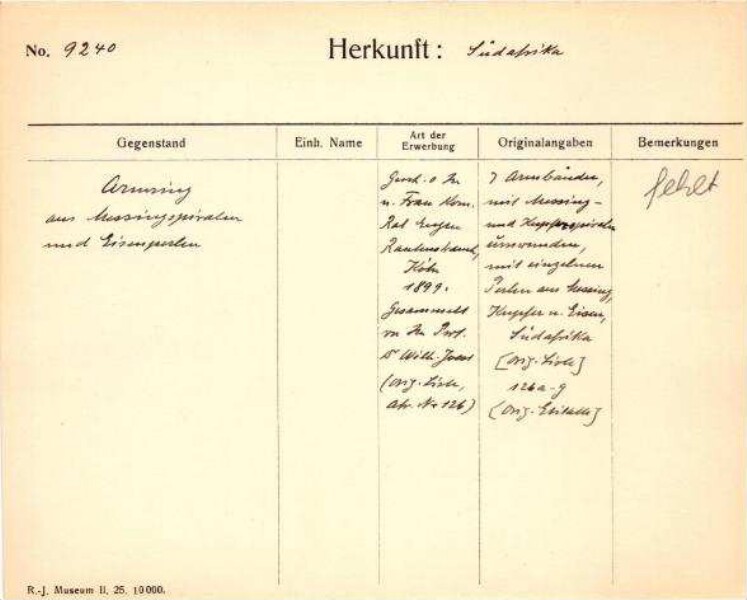 No. 9240 Herkunft: Südafrika
Gegenstand Einh. Name Art der Erwerbung Originalangaben Bemerkungen
Armring
aus Messingspiralen
und Eisenperlen
Gesch. v. Hr.
u. Frau Kom.
Rat Eugen
Rautenstrauch,
Köln
1899.
Gesammelt
von Hr. Prof.
Dr Wilh. Joest
(Orig. Liste,
Afr. No 126)
7 Armbänder,
mit Messing-
und Kupferspiralen
umwunden,
mit einzelnen
Perlen aus Messing,
Kupfer u. Eisen,
Südafrika
[Orig. Liste]
126a-g
[Orig. Etikette]
fehlt
R.-J. Museum II. 25. 10000.